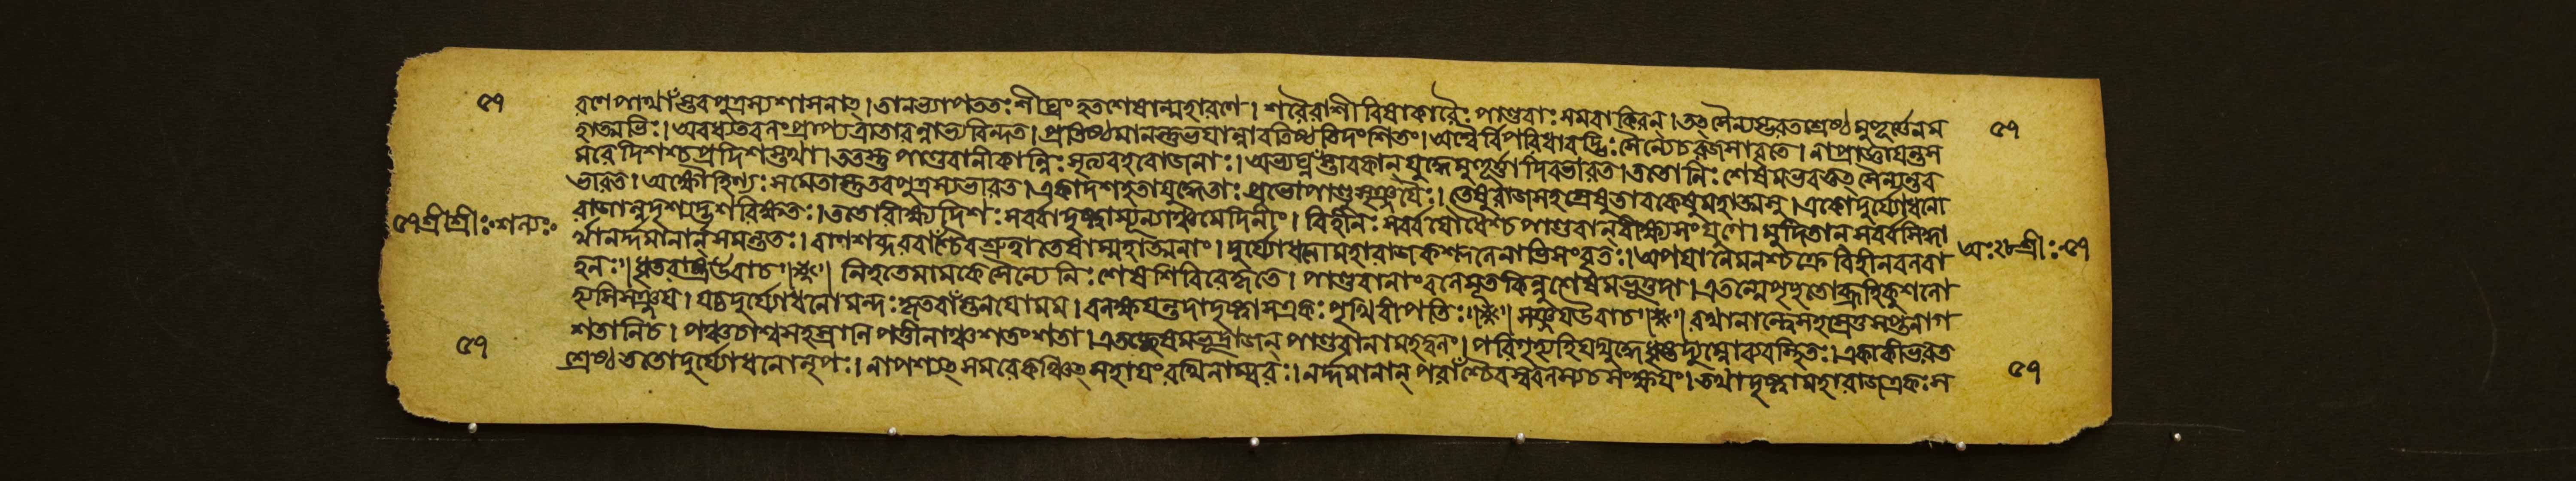 ৫৭
রণে পার্থাংস্তবপুত্রস্যশাসনাৎ। তানভ্যাপততঃ শীঘ্রং হতশেষান্মহারণে। শরৈরাশীবিষাকারৈঃ পাণ্ডবাঃ সমবাকিরন্। তৎসৈন্যম্ভরতশ্রেষ্ঠ মুহূর্ত্তেনম
হাত্মভিঃ। অবধ্যতরণং প্রাপ্যত্রাতারন্নাভ্যবিন্দত। প্রতিষ্ঠমানন্তুভয়ান্নাবতিষ্ঠতিদংশিতং। অশ্বৈর্বিপরিধাবদ্ভিঃ সৈন্যেচরজসাবৃতে। নাপ্রাজ্ঞায়ন্তস
মরে দিশশ্চপ্রদিশস্তথা। ততস্তু পাণ্ডবানীকান্নিঃসৃত্যবহবোজনাঃ। অভ্যঘ্নংস্তাবকান্ যুদ্ধেমুহূর্ত্তাদিবভারত। ততোনিঃশেষমভবত্তৎ সৈন্যন্তব
ভারত। অক্ষৌহিণ্যঃ সমেতাস্তুতবপুত্রস্যভারত। একাদশহতাযুদ্ধেতাঃ প্রভোপাণ্ডুসৃঞ্জয়ৈঃ। তেষুরাজসহস্রেষুতাবকেষুমহাত্মসু। একোদুর্য্যোধনো
রাজান্নদৃশ্যদ্ভৃশবিক্ষতঃ। ততোবীক্ষ্যদিশঃ সর্ব্বাদৃষ্ট্বাশূন্যাঞ্চমেদিনীং। বিহীনঃ সর্ব্বযোধৈশ্চ পাণ্ডবান্ বীক্ষ্যসংযুগে। মুদিতান্ সর্ব্বসিদ্ধা
র্থানর্দ্দমানান্ সমন্ততঃ। বাণশব্দরবাংশ্চৈবশ্রুত্বাতেষাম্মহাত্মনাং। দুর্য্যোধনোমহারাজকশ্মলেনাভিসংবৃতঃ। অপযানেমনশ্চক্রেবিহীনবলবা
হনঃ॥ ধৃতরাষ্ট্রউবাচ॥ নিহতেমামকেসৈন্যেনিঃশেষেশিবিরেকৃতে। পাণ্ডবানাংবলেসূতকিন্নুশেষমভূত্তদা। এতন্মেপৃচ্ছতোব্রূহিকুশলো
হ্যসিসঞ্জয়। যচ্চদুর্য্যোধনোমন্দঃকৃতবাংস্তনয়োমম। বলক্ষয়ন্তদাদৃষ্ট্বাসএকঃ পৃথিবীপতিঃ॥ সঞ্জয়উবাচ॥ রথানান্দ্বেসহস্রেতুসপ্তনাগ
শতানিচ। পঞ্চচাশ্বসহস্রানি পত্তীনাঞ্চশতংশতা। এতচ্ছেষমভূদ্রাজন্ পাণ্ডবানামহদ্বলং। পরিগৃহ্যহিযদ্যুদ্ধেধৃষ্টদ্যুম্নোব্যবস্থিতঃ। একাকীভরত
শ্রেষ্ঠততোদুর্য্যোধনোনৃপঃ। নাপশ্যৎ সমরেকঞ্চিৎ সহায়ংরথিনাম্বরঃ। নর্দ্দমানান্ পরাংশ্চৈবস্ববলস্যচসংক্ষয়ং। তথাদৃষ্ট্বামহারাজএকঃস
৫৭
৫৭শ্রীশ্রীঃ শল্যঃ
অঃ২৮শ্রীঃ৫৭
৫৭
৫৭